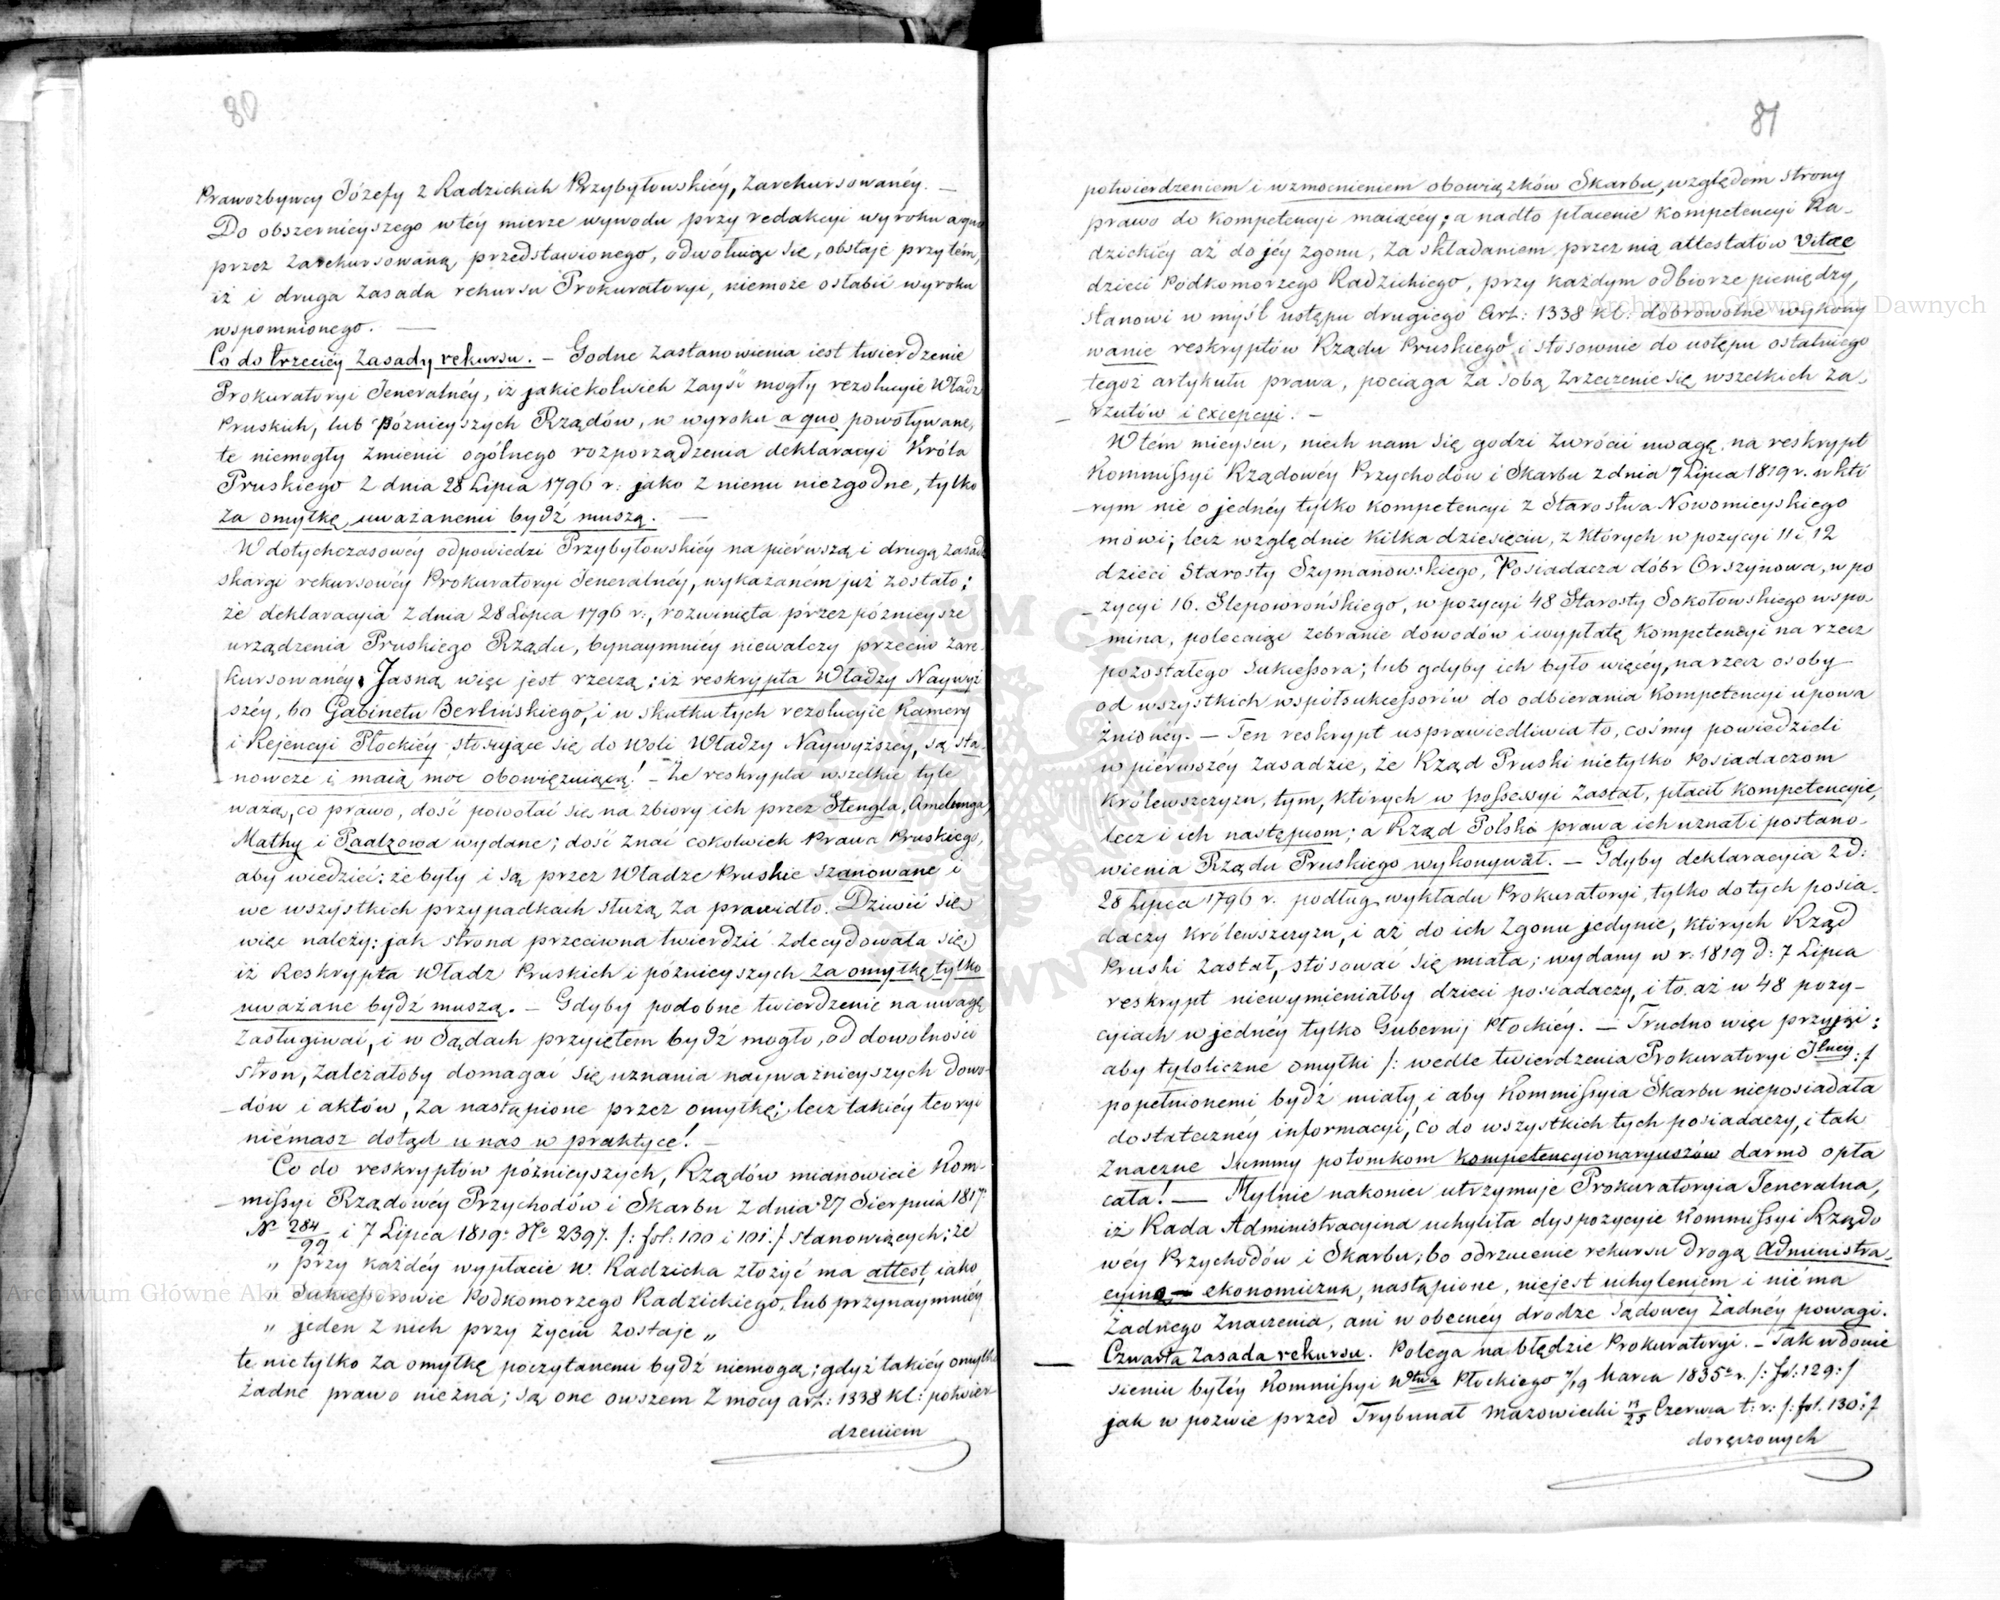 80
Prawozbywcy Józefy z Radzickich Przybyłowskiéy, Zarekursowanéy. —
Do obszernieyszego w téy mierze wywodu przy redakcyi wyroku a quo
przez zarekursowaną przedstawionego, odwołuiąc się, obstaje przy tém,
iż i druga Zasada rekursu Prokuratoryi, niemoże osłabić wyroku
wspomnionego. —
Co do trzeciéy Zasady rekursu. — Godne Zastanowienia iest twierdzenie
Prokuratoryi Jeneralnéy, iż jakiekolwiek zayść mogły rezolucyie Władz
Pruskich, lub późnieyszych Rządów, w wyroku a quo powoływane,
te niemogły zmienić ogólnego rozporządzenia deklaracyi Króla
Pruskiego z dnia 28 Lipca 1796 r: jako z niemi niezgodne, tylko
za omyłkę, uważanemi bydź muszą. —
W dotychczasowéy odpowiedzi Przybyłowskiéy na piérwszą i drugą zasadę
skargi rekursowéy Prokuratoryi Jeneralnéy, wykazaném już zostało;
że deklaracyia z dnia 28 Lipca 1796 r:, rozwinięta przez późnieysze
urządzenia Pruskiego Rządu, bynaymniéy niewalczy przeciw Zare-
kursowanéy. Jasną więc jest rzeczą: iż reskrypta Władzy Naywyż
széy, bo Gabinetu Berlińskiego, i w skutku tych rezolucyie Kamery
i Rejencyi Płockiéy stosujące się do woli Władzy Naywyższéy, są sta-
nowcze i maią moc obowięzuiącą! — Że reskrypta wszelkie tyle
ważą, co prawo, dość powołać się na zbiory ich przez Stengla, Amelunga,
Mathy i Paalzowa wydane; dość znać cokolwiek Prawa Pruskiego,
aby wiedzieć: że były i są przez Władze Pruskie szanowane i
we wszystkich przypadkach służą za prawidło. Dziwić się
więc należy: jak strona przeciwna twierdzić zdecydowała się,
iż Reskrypta Władz Pruskich i późnieyszych za omyłkę tylko
uważane bydź muszą. — Gdyby podobne twierdzenie na uwagę
zasługiwać, i w Sądach przyiętem bydź mogło, od dowolności
stron, zależałoby domagać się uznania nayważnieyszych dowo-
dów i aktów, za nastąpione przez omyłkę; lecz takiéy teoryi
niémasz dotąd u nas w praktyce! —
Co do reskryptów późnieyszych, Rządów mianowicie Kom-
missyi Rządowéy Przychodów i Skarbu z dnia 27 Sierpnia 1817:
No 284/99 i 7 Lipca 1819: No 2397. /: fol: 100 i 101:/ stanowiących; że
„ przy każdéy wypłacie W. Radzicka złożyć ma attest, iako
„ Sukcessorowie Podkomorzego Radzickiego, lub przynaymniéy
„ jeden z nich przy życiu zostaje „
te nietylko za omyłkę poczytanemi bydź niemogą; gdyż takiéy omyłki
żadne prawo niezna; są one owszem z mocy art: 1338 Kl: potwier-
dzeniem
81
potwierdzeniem i wzmocnieniem obowiązków Skarbu, względem strony
prawo do kompetencyi maiącéy; a nadto płacenie kompetencyi Ra-
dzickiéy aż do jéy zgonu, za składaniem przez nią attestatów Vitae
dzieci Podkomorzego Radzickiego, przy każdym odbiorze pieniędzy,
stanowi w myśl ustępu drugiego Art: 1338 Kl: dobrowolne wykony
wanie reskryptów Rządu Pruskiego i stosownie do ustępu ostatniego
tegoż artykułu prawa, pociąga za sobą zrzeczenie się wszelkich za-
rzutów i excepcyi. —
W tém mieyscu, niech nam się godzi zwrócić uwagę, na reskrypt
Kommissyi Rządowéy Przychodów i Skarbu z dnia 7 Lipca 1819 r. w któ
rym nie o jednéy tylko kompetencyi z Starostwa Nowomieyskiego
mówi; lecz względnie kilkadziesięciu, z których w pozycyi 11 i 12
dzieci Starosty Szymanowskiego, Posiadacza dóbr Orszynowa, w po
zycyi 16. Slepowrońskiego, w pozycyi 48 Starosty Sokołowskiego wspo-
mina, polecaiąc zebranie dowodów i wypłatę kompetencyi na rzecz
pozostałego sukcessora; lub gdyby ich było więcéy, na rzecz osoby
od wszystkich współsukcessorów do odbierania kompetencyi upowa
żnionéy. — Ten reskrypt usprawiedliwia to, cośmy powiedzieli
w piérwszéy zasadzie, że Rząd Pruski nietylko Posiadaczom
Królewszczyzn, tym, których w possessyi zastał, płacił kompetencyie,
lecz i ich następcom; a Rząd Polski prawa ich uznał i postano-
wienia Rządu Pruskiego wykonywał. — Gdyby deklaracyia z d:
28 Lipca 1796 r. podług wykładu Prokuratoryi, tylko do tych posia-
daczy Królewszczyzn, i aż do ich zgonu jedynie, których Rząd
Pruski zastał, stosować się miała; wydany w r: 1819 d: 7 Lipca
reskrypt niewymieniałby dzieci posiadaczy, i to aż w 48 pozy-
cyiach w jednéy tylko Gubernij Płockiéy. — Trudno więc przyjąć;
aby tyloliczne omyłki /: wedle twierdzenia Prokuratoryi Jlnéy :/
popełnionemi bydź miały, i aby Kommissyia Skarbu nieposiadała
dostatecznéy informacyi, co do wszystkich tych posiadaczy, i tak
znaczne summy potomkom kompetencyionaryuszów darmo opła
cała! — Mylnie nakoniec utrzymuje Prokuratoryia Jeneralna,
iż Rada Administracyina uchyliła dyspozycyie Kommissyi Rządo
wéy Przychodów i Skarbu; bo odrzucenie rekursu drogą administra-
cyiną — ekonomiczną, nastąpione, niejest uchyleniem i niéma
żadnego znaczenia, ani w obecnéy drodze sądowéy żadnéy powagi.
Czwarta zasada rekursu. Polega na błędzie Prokuratoryi. — Tak w donie
sieniu byłéy Kommissyi Wtwa Płockiego 7/19 Marca 1835o r. /: fol: 129:/
jak w pozwie przed Trybunał Mazowiecki 13/25 Czerwca t: r: /: fol. 130:/
doręczonych